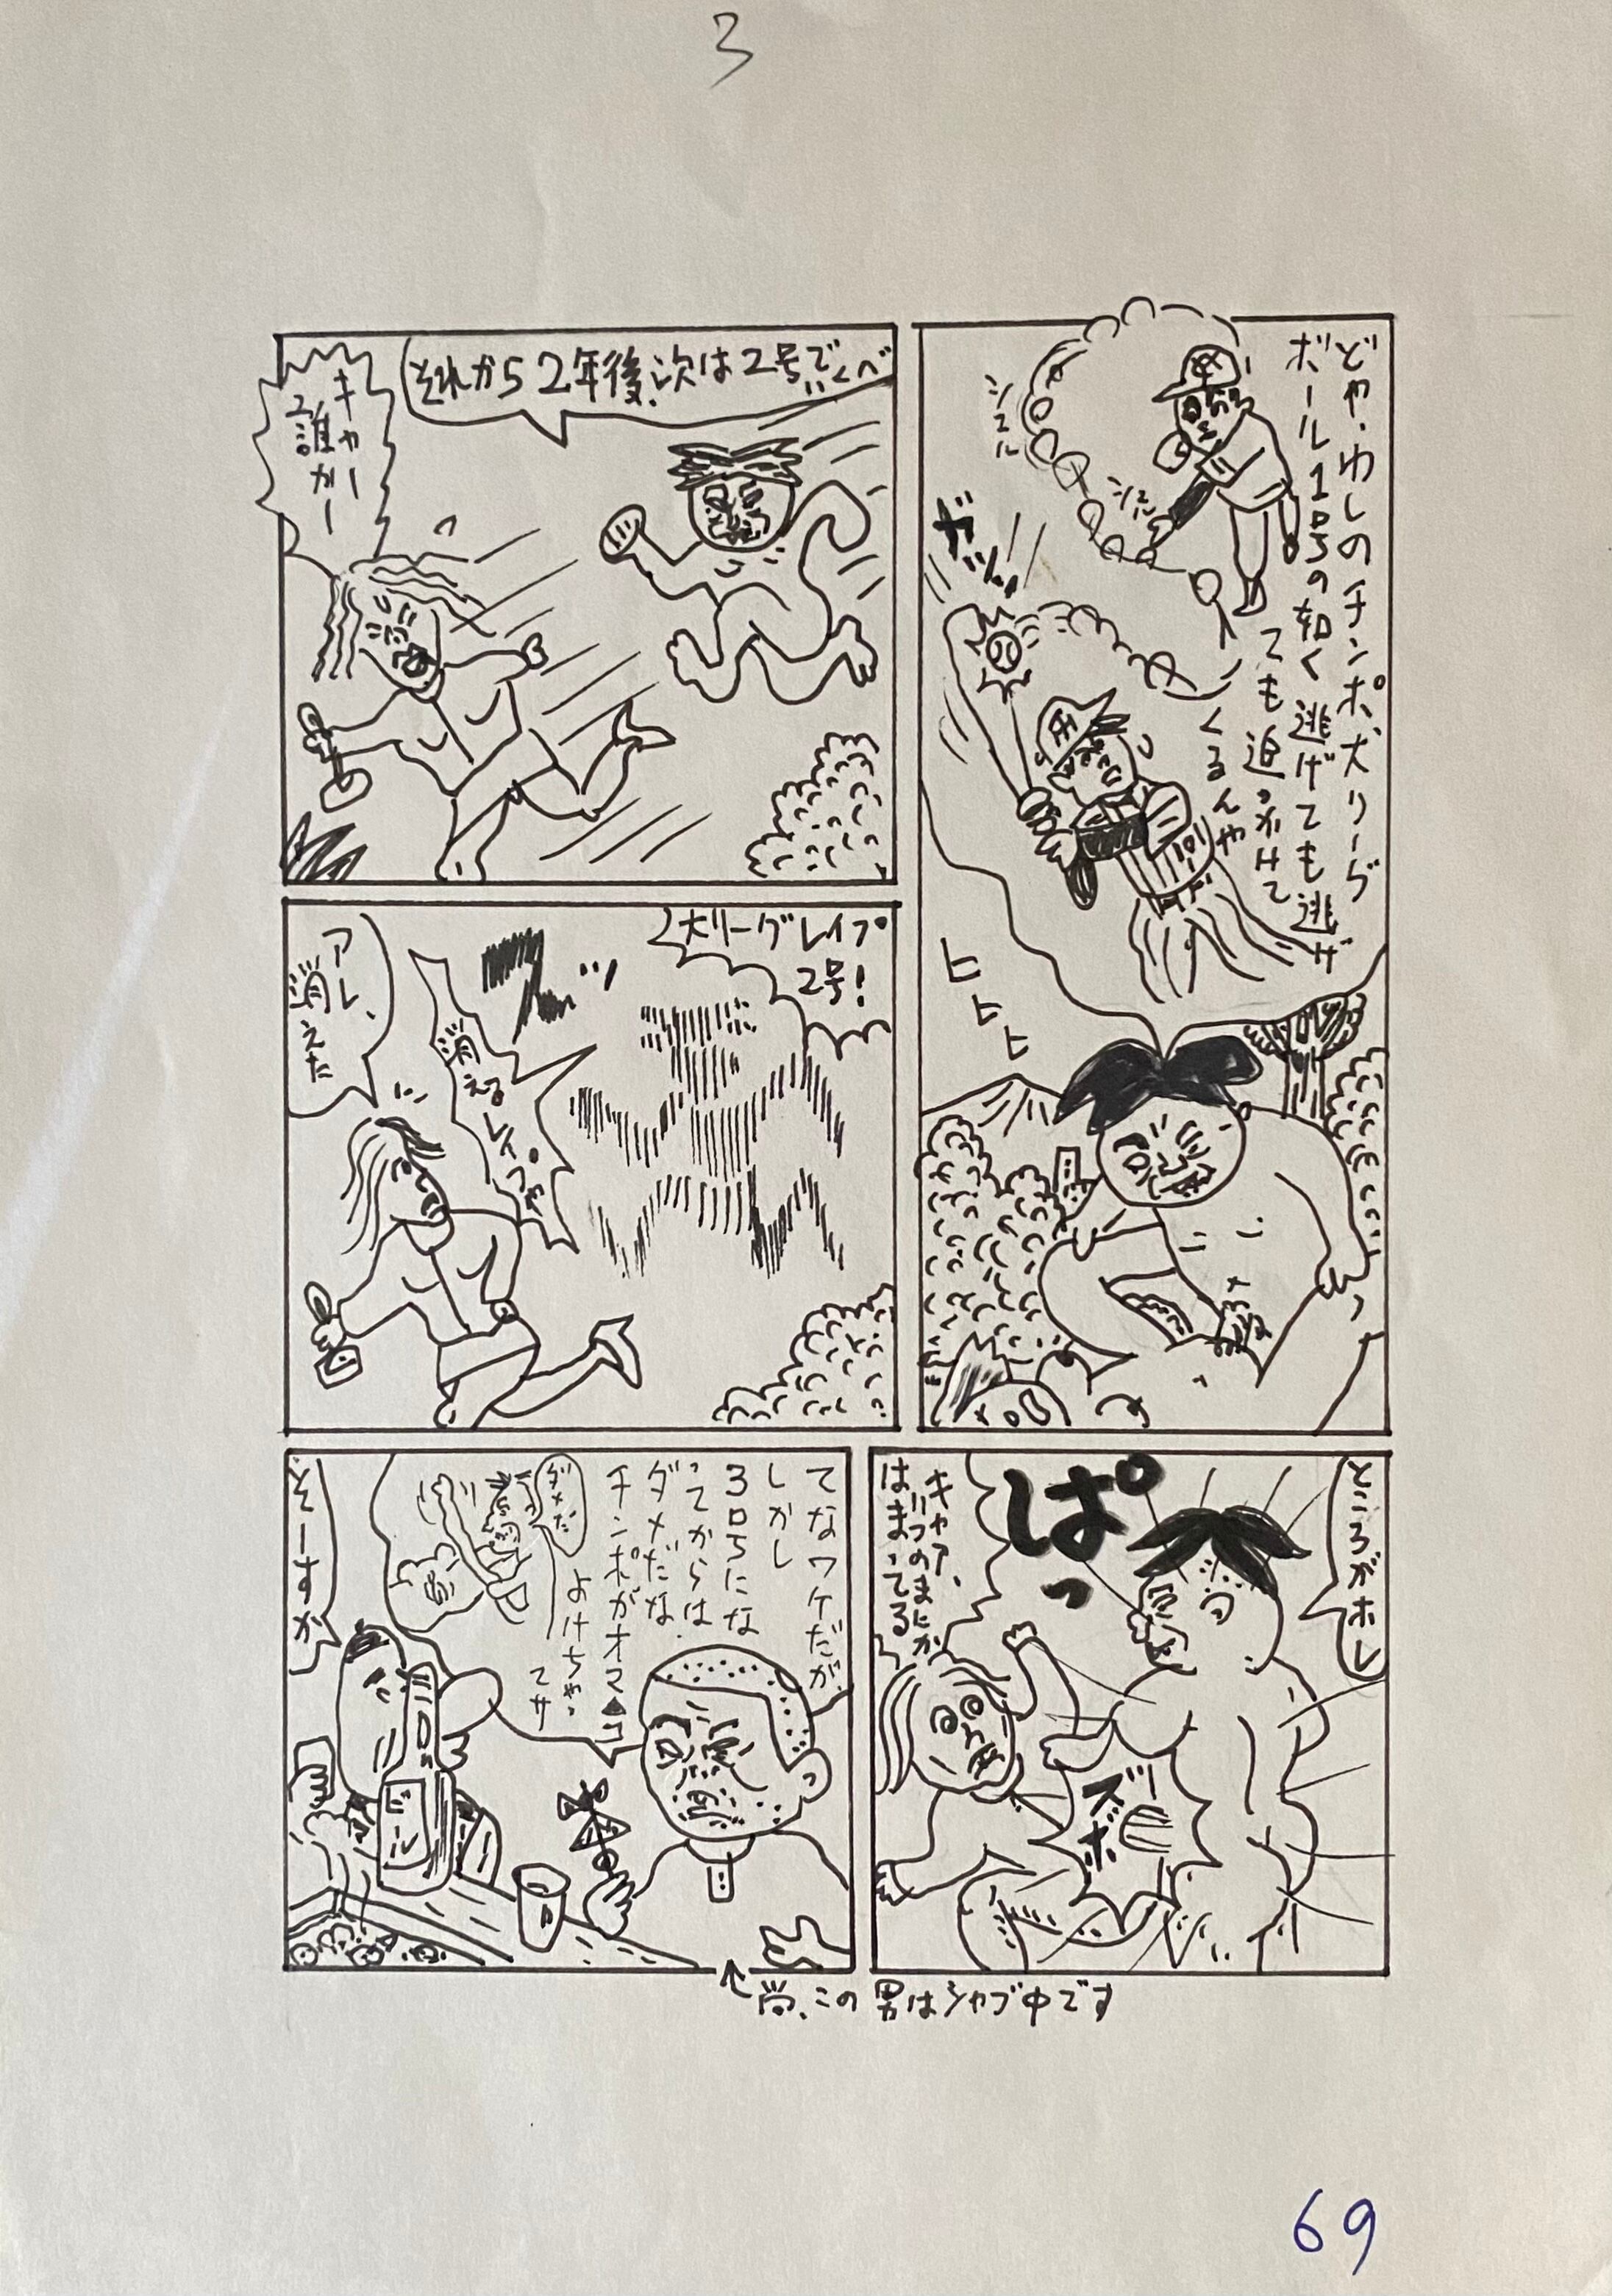 3
どや、わしのチンポ、大リーグ
ボール1号の如く逃げても逃げ
ても追っかけて
くるんや
シュル
シュル
ガッ
ヒヒヒ
それから2年後、次は2号でいくべ
キャー
誰かー
大リーグレイプ
2号!
消えるレイプや
アレ、
消えた
ところがホレ
ぱっ
ズボ
キャア、
いつのまにか
はまってる
てなワケだが
しかし
3号にな
ってからは
ダメだな、
チンポがオマ▲コ
よけちゃっ
てサ
ダメだ
そーすか
↑尚、この男はシャブ中です
69